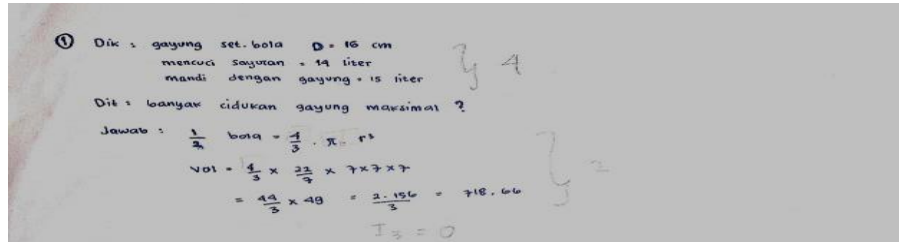 ① Dik : gayung set. bola D = 16 cm
mencuci sayuran = 14 liter
mandi dengan gayung = 15 liter
} 4
Dit : banyak cidukan gayung maksimal ?
Jawab : 1/2 bola = 4/3 . π . r³
Vol = 4/3 × 22/7 × 7×7×7
= 44/3 × 49 = 2.156/3 = 718.66
} 2
I3 = 0